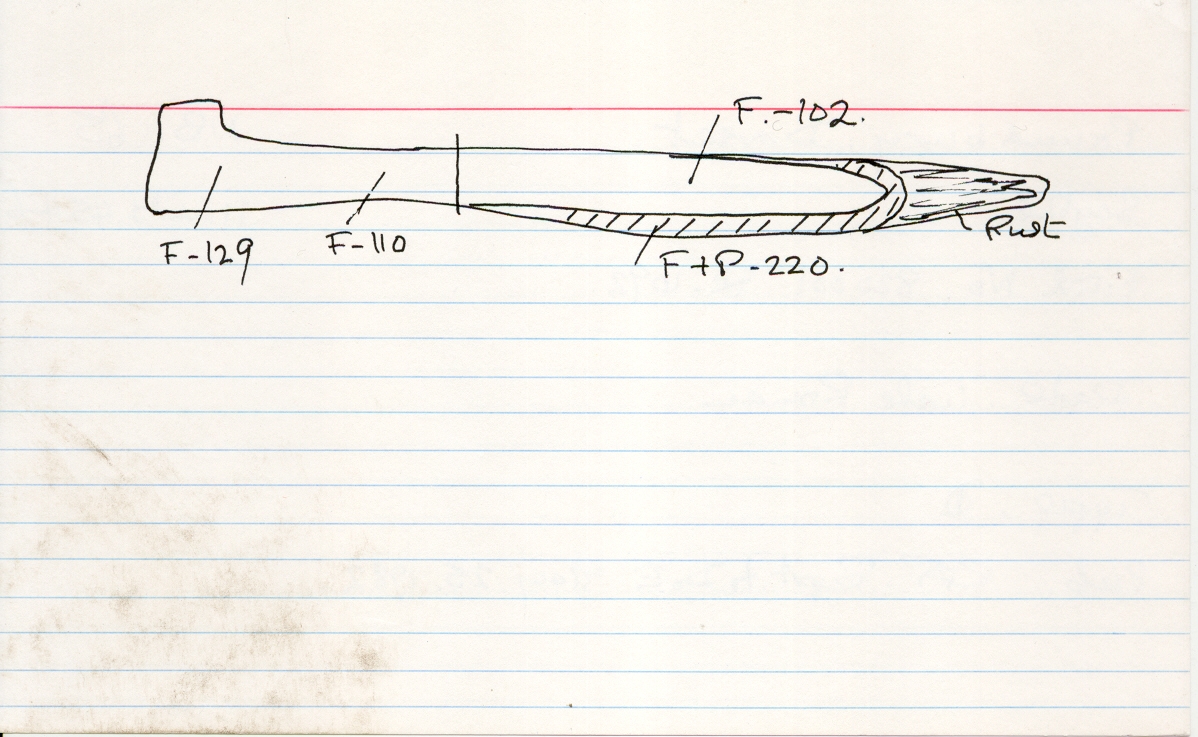 F.-102.
F-129
F-110
F+P-220.
Rust